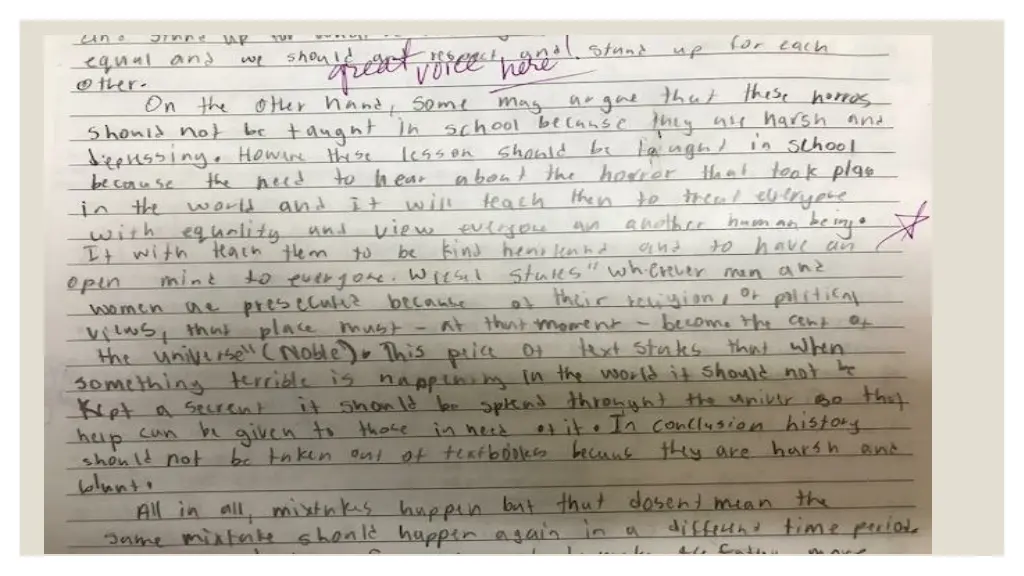 and stand up for
equal and we should get respect and stand up for each
great voice here!
other.
On the other hand, some may argue that these horros
should not be taught in school because they are harsh and
depressing. Howevre these lesson should be taught in school
because the need to hear about the horror that took plac
in the world and it will teach then to treat everyone
with equality and view everyone an another human being.
It with teach them to be kind and to have an
open mind to everyone. Wiesel states "wherever men and
women are presecuted because of their religion, or political
views, that place must - at that moment - become the cent of
the universe" (Noble). This peice of text states that when
something terrible is happening in the world it should not be
kept a secrent it should be spread throught the univer so that
help can be given to those in need of it. In conclusion history
should not be taken out of textbooks becaus they are harsh and
blunt.
All in all, mixtakes happen but that dosent mean the
same mixtake should happen again in a different time period.